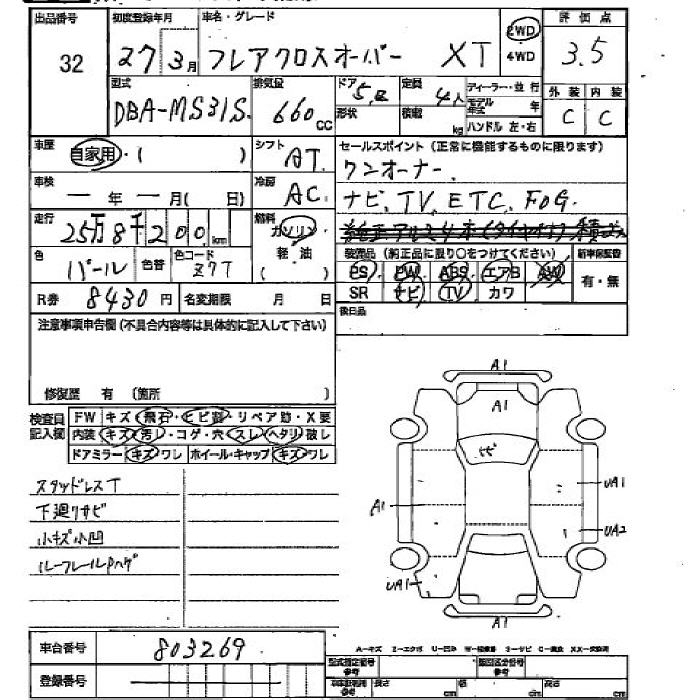 出品番号 初度登録年月 車名・グレード 2WD 評価点
32 27 3月 フレアクロスオーバー XT 4WD 3.5
型式 排気量 ドア 5D 定員 4人 ディーラー・並行 外装 内装
DBA-MS31S 660cc 形状 積載 kg モデル年式 年 C C
ハンドル 左・右
車歴 自家用・( ) シフト AT セールスポイント (正常に機能するものに限ります)
ワンオーナー、
車検 ー年ー月( 日) 冷房 AC ナビ、TV、ETC、FOG.
走行 25万8千200km 燃料 ガソリン
軽油
( )
色 パール 色替 色コード Z7T 装備品 (純正品に限り〇をつけてください) 新車保証書
PS PW ABS エアB AW 有・無
R券 8430円 名変期限 月 日 SR ナビ TV カワ
注意事項申告欄(不具合内容等は具体的に記入して下さい) 後日品
修復歴 有 (箇所 )
検査員記入欄 FW キズ・飛石・ヒビ割・リペア跡・X要
内装 キズ・汚レ・コゲ・穴・スレ・ヘタリ・破レ
ドアミラー キズ・ワレ ホイール・キャップ キズ・ワレ
スタッドレスT
下廻リサビ
小キズ小凹
ルーフレールPハゲ
A1
A1
ヒビ
A1
UA1
UA2
UA1
A1
車台番号 803269
登録番号
型式指定番号 参考 類別区分番号 参考
長さ cm 幅 cm 高さ cm